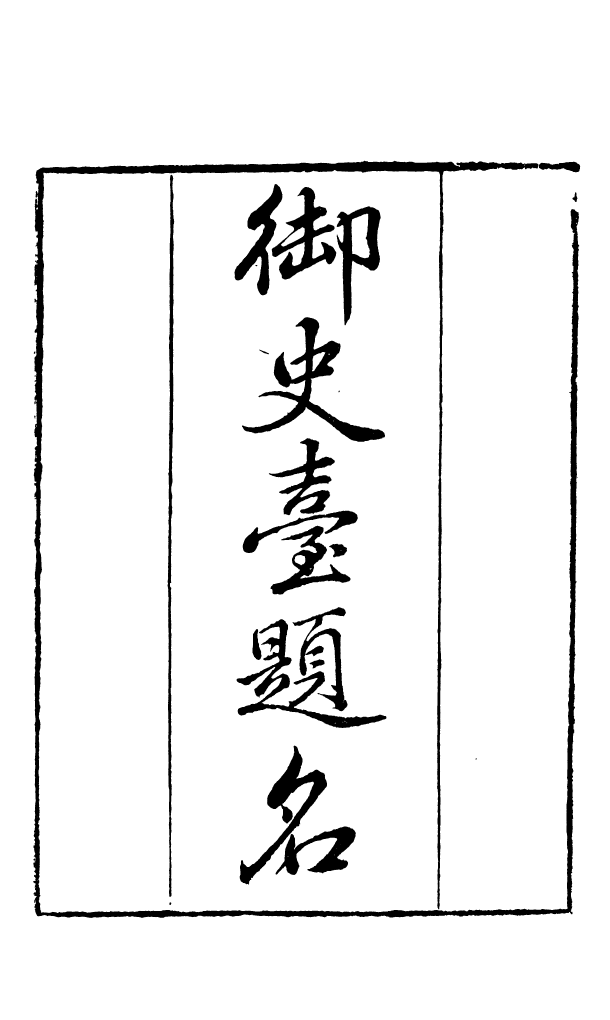 御史臺題名